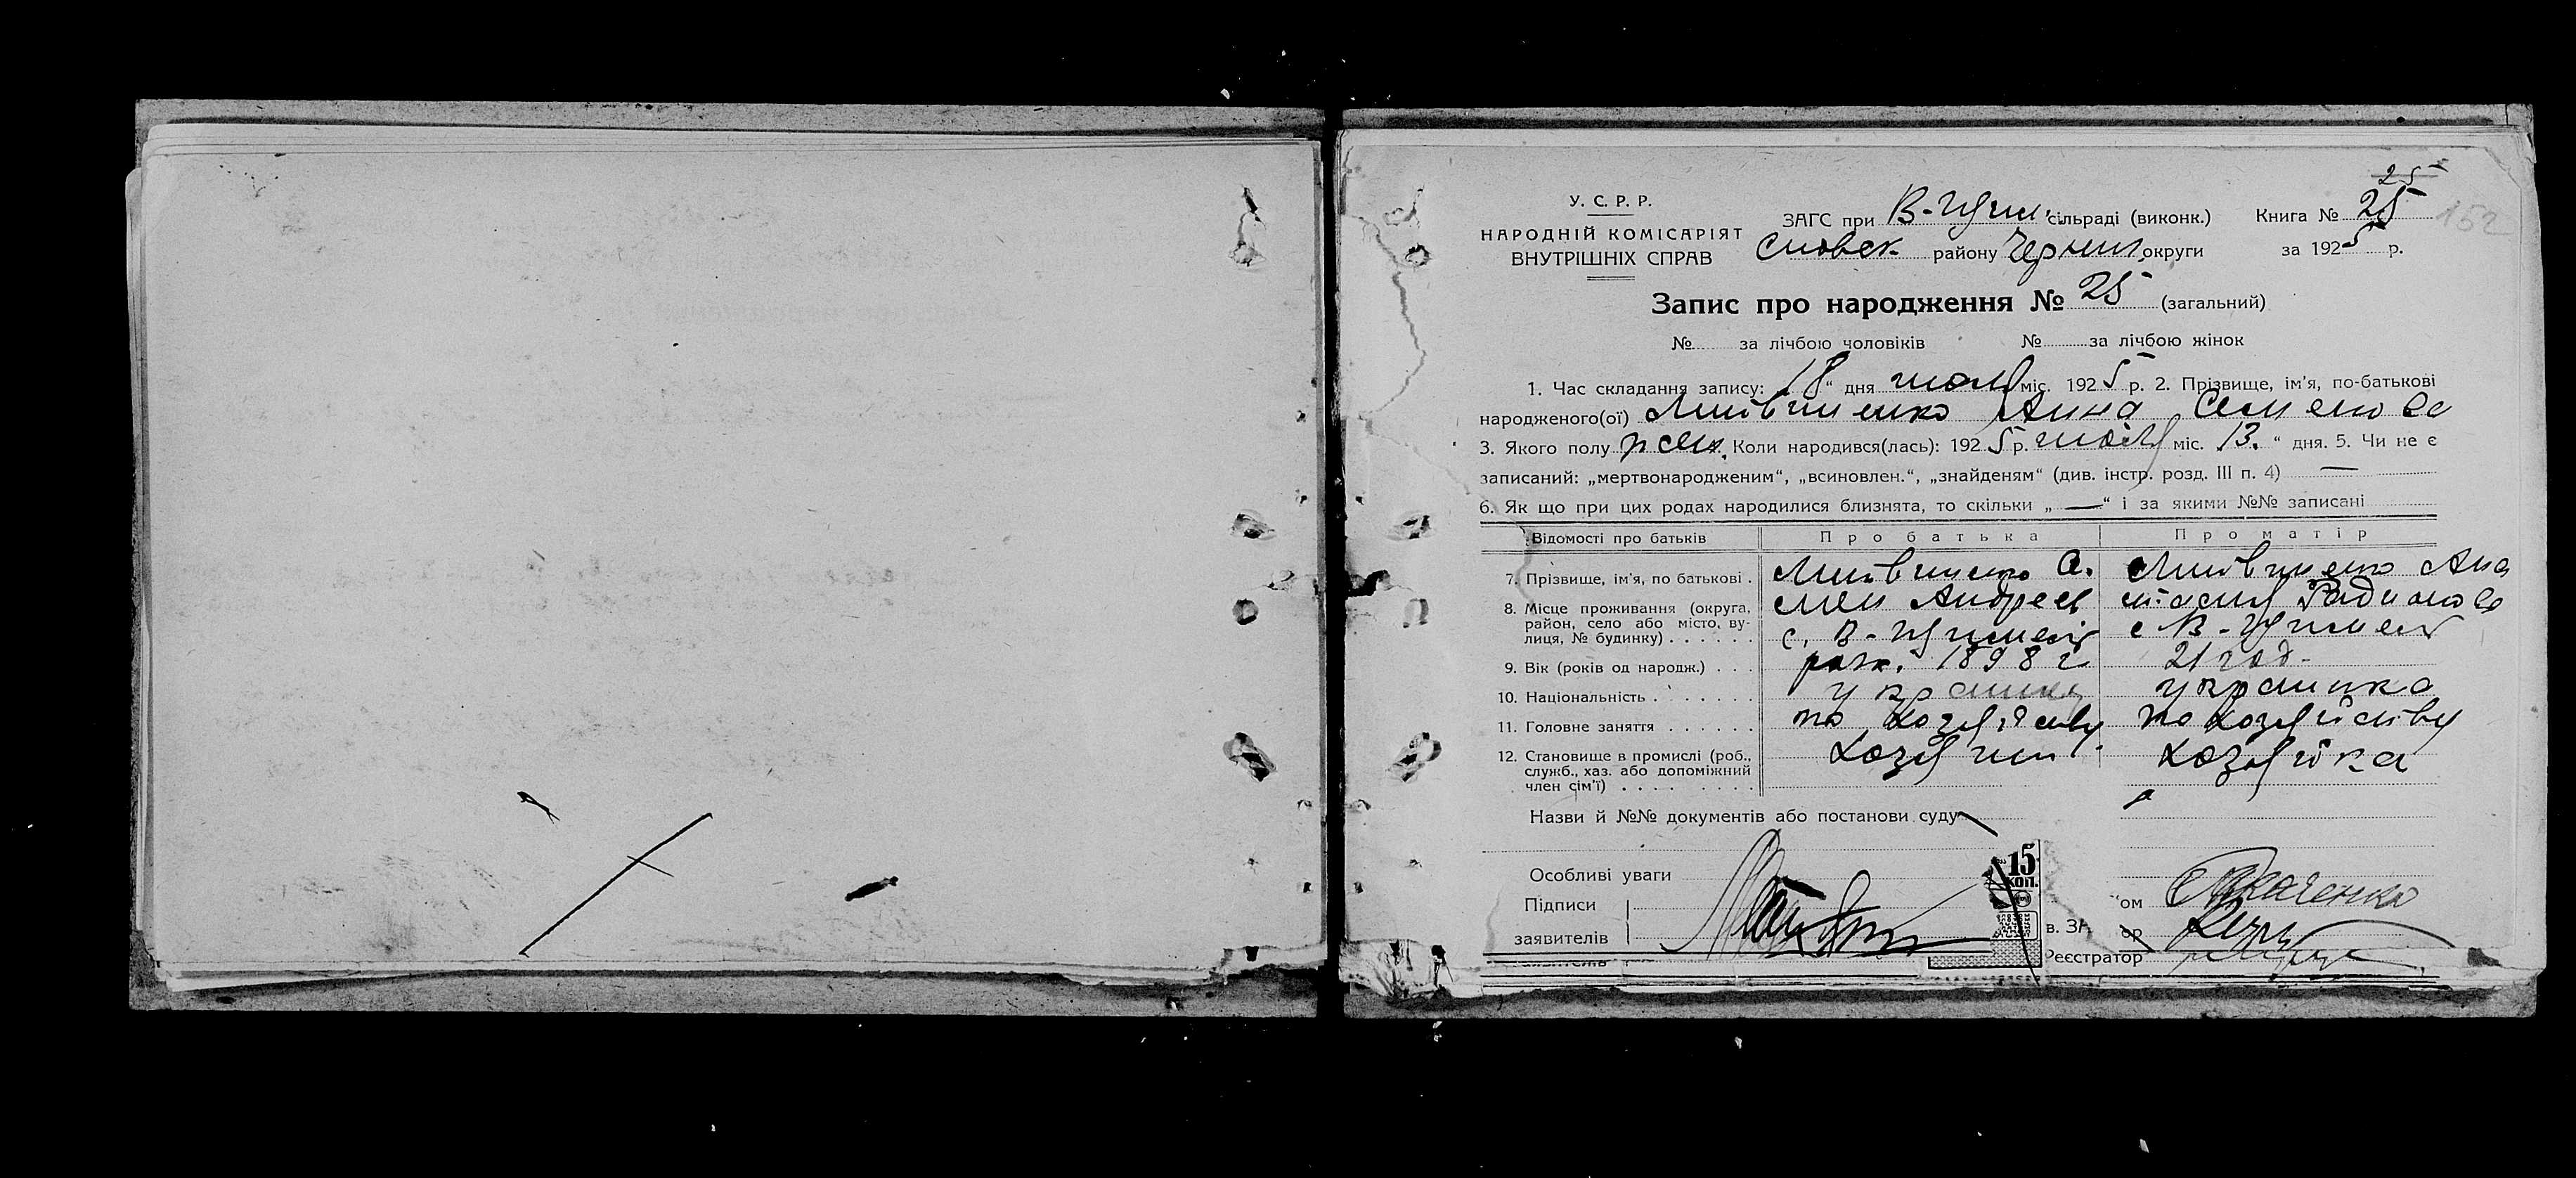 25
У. С. Р. Р.
НАРОДНІЙ КОМІСАРІЯТ
ВНУТРІШНІХ СПРАВ
ЗАГС при сільраді (виконк.) Книга № 25 152
Сновск. району Черниг. округи за 1925 р.
Запис про народження № 25 (загальний)
№ за лічбою чоловіків № за лічбою жінок
1. Час складання запису: 18 “ дня июля міс. 1925 р. 2. Прізвище, ім’я, по-батькові
народженого(ої) Литвиненко Анна Семенова
3. Якого полу жен. Коли народився(лась): 1925 р. июля міс. 13. “ дня. 5. Чи не є
записаний: „мертвонародженим“, „всиновлен.“, „знайденям“ (див. інстр. розд. III п. 4) —
6. Як що при цих родах народилися близнята, то скільки „ — “ і за якими №№ записані
Відомості про батьків Про батька Про матір
7. Прізвище, ім’я, по батькові . Литвиненко Се Литвиненко Ана
8. Місце проживання (округа, мен Андреев стасия Радионова
район, село або місто, ву-
лиця, № будинку) . . . . . . с. В- с В-
9. Вік (років од народж.) . . . рож. 1898 г 21 год-
10. Національність . . . . . . . украинец украинка
11. Головне заняття . . . . . . по хозяйству по хозяйству
12. Становище в промислі (роб., хозяин хозяйка
служб., хаз. або допоміжний
член сім’ї) . . . . . . . .
Назви й №№ документів або постанови суду
Особливі уваги
15
КОП.
Підписи ом Ткаченко
заявителів в. ЗА ор
Реєстратор